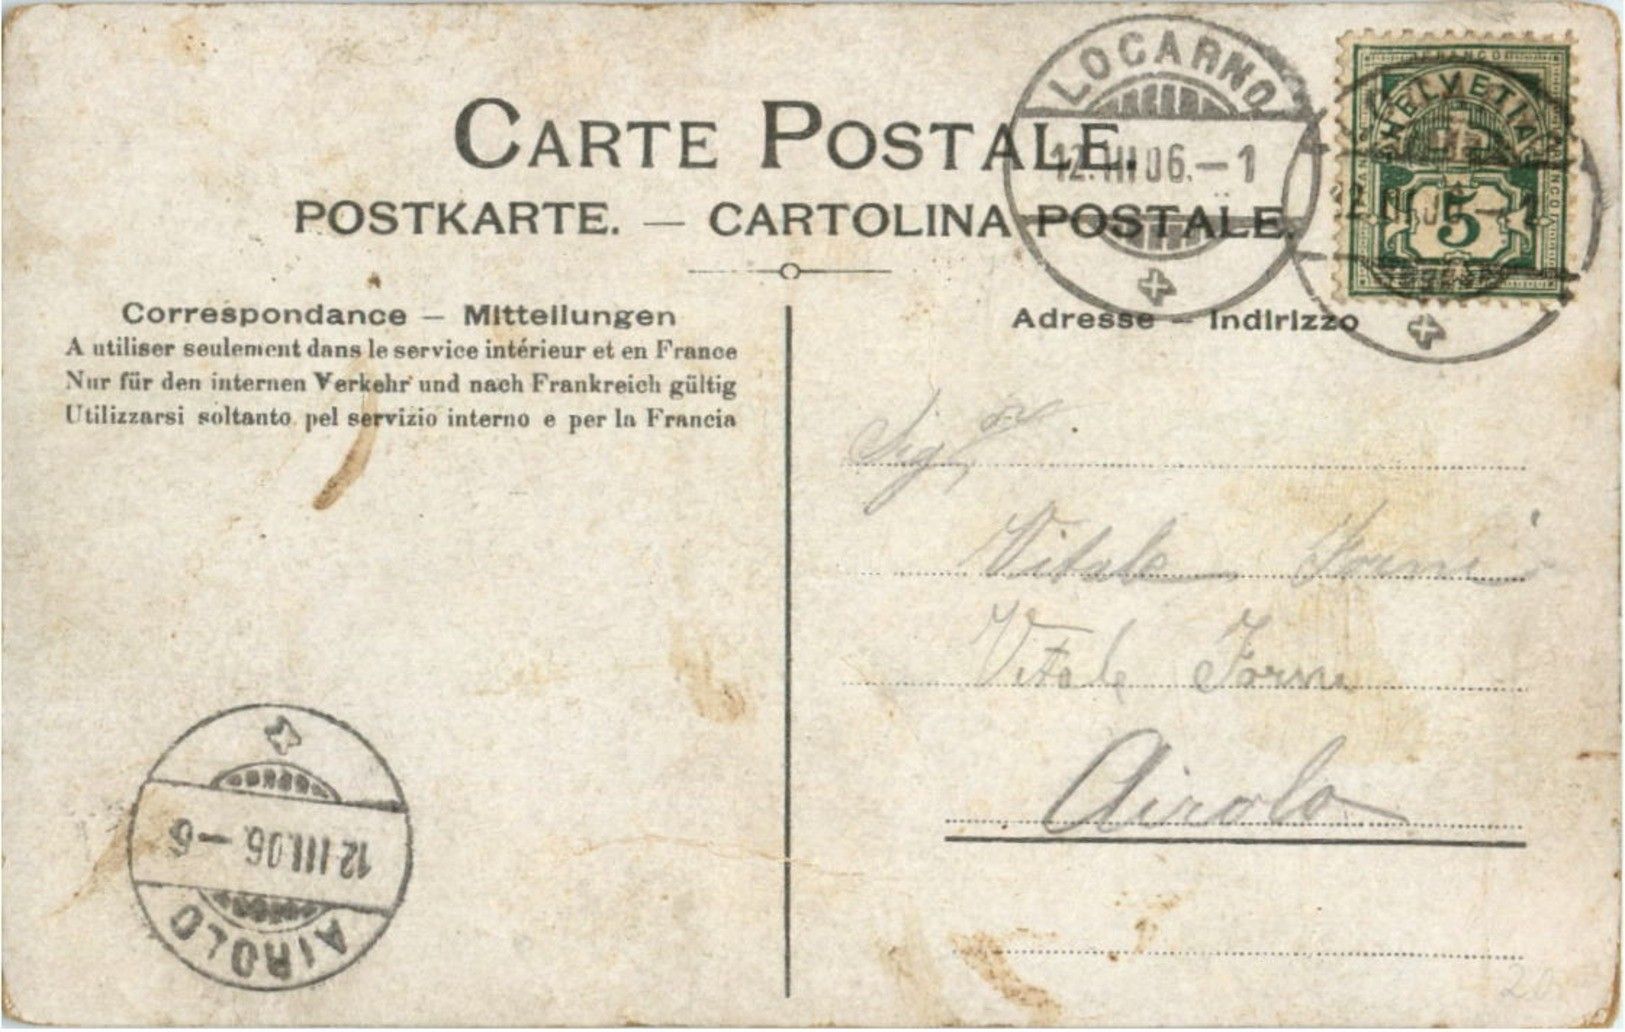 CARTE POSTALE.
POSTKARTE. — CARTOLINA POSTALE.
LOCARNO
12.III 06.–1
HELVETIA
5
Correspondance — Mitteilungen
A utiliser seulement dans le service intérieur et en France
Nur für den internen Verkehr und nach Frankreich gültig
Utilizzarsi soltanto pel servizio interno e per la Francia
Adresse — Indirizzo
Sig
Vitale Forni
Vitale Forni
Airolo
AIROLO
12 III.06.–6